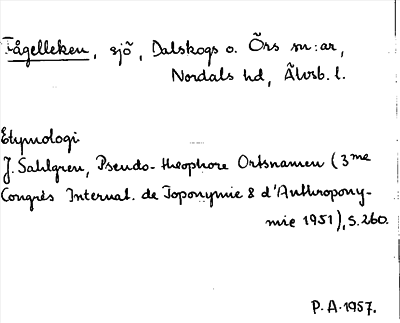 Fågelleken, sjö, Dalskogs o. Örs sn:ar,
Nordals hd, Älvsb. l.
Etymologi
J. Sahlgren, Pseudo-theophore Ortsnamen (3me
Congrès Internat. de Toponymie & d'Anthropony-
mie 1951), s. 260.
P.A. 1957.